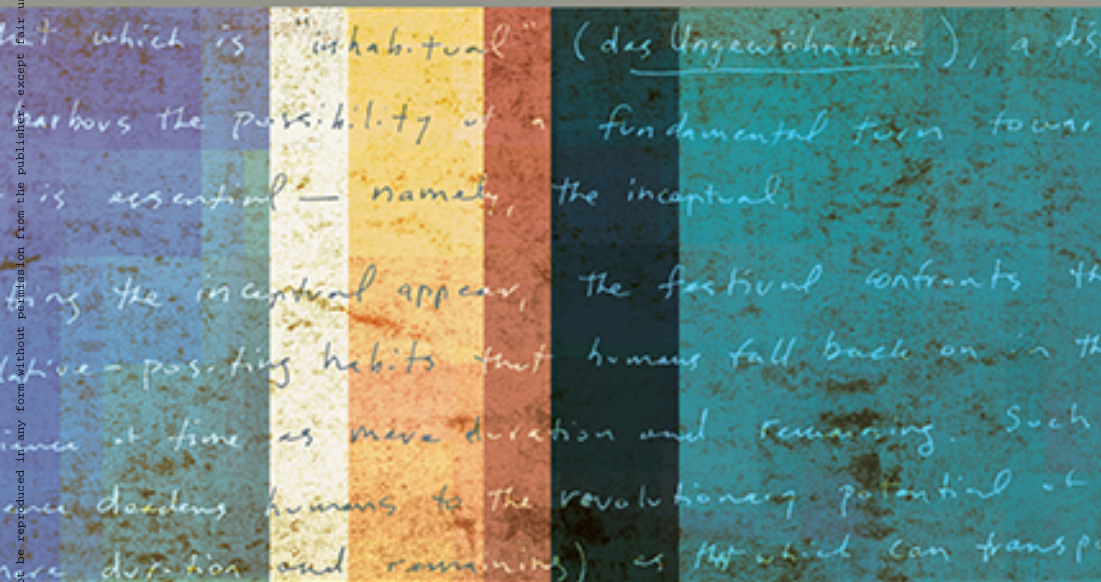 which is "inhabitual" (das Ungewöhnliche), a
harbors the possibility of a fundamental turn
is essential — namely, the inceptual.
the inceptual appear, the festival confronts
positing habits that humans fall back on in
time as mere duration and remaining. Such
deadens humans to the revolutionary potential of
duration and remaining) as that which can
be reproduced in any form without permission from the publisher, except fair